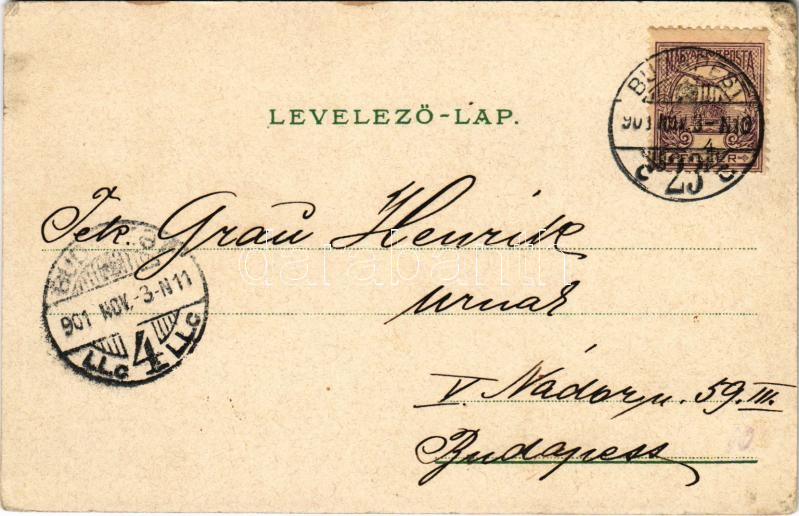 MAGYAR KIR. POSTA
BUDAPEST
901 NOV. -3- N10
c 23 c
LEVELEZŐ-LAP.
Tek. Grau Henrik
urnak
BUDAPEST
901 NOV. -3-N11
LLC 4 LLC
V. Nádor u. 59. III.
Budapest
darabanth